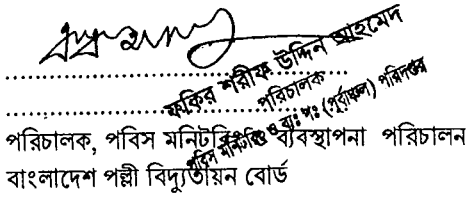 ফকির শরীফ উদ্দিন আহমেদ
পরিচালক
পবিস মনিটরিং ও ব্যঃ পঃ (পূর্বাঞ্চল) পরিদপ্তর
পরিচালক, পবিস মনিটরিং ব্যবস্থাপনা পরিচালন
বাংলাদেশ পল্লী বিদ্যুতায়ন বোর্ড